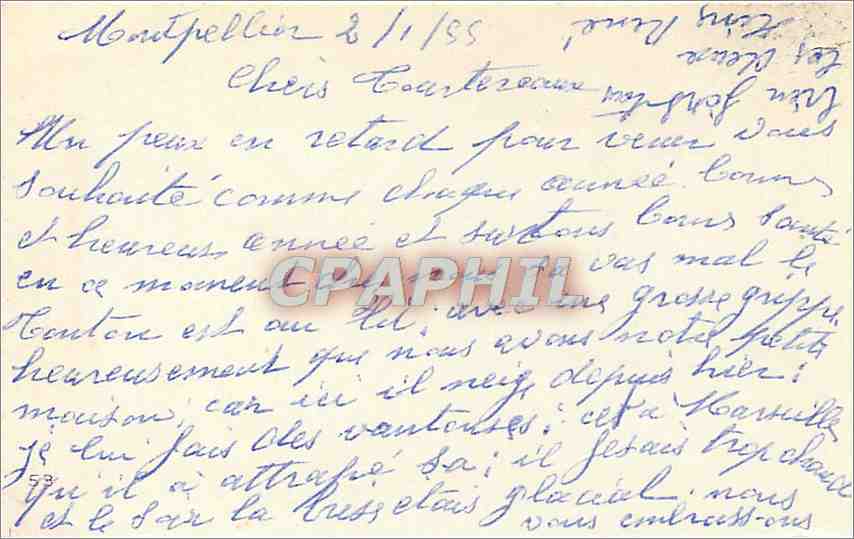 Montpellier 2/1/55
Chers Tourtereaux
Un peux en retard pour venir vous
souhaité comme chaque année bonnes
et heureus année et surtous bons santé
en ce moment chez nous sa vas mal le
Tonton est au lit; avec une grosse grippe
heureusement que nous avons notre petite
maison; car ici il neige depuis hier;
je lui fais des vantouses; cet à Marseille
qu'il à attrapé sa; il fesais trop chaud
et le soir la bress etais glacial. nous
vous embrassons
bien fort tous
les deux
René
53
CPAPHIL